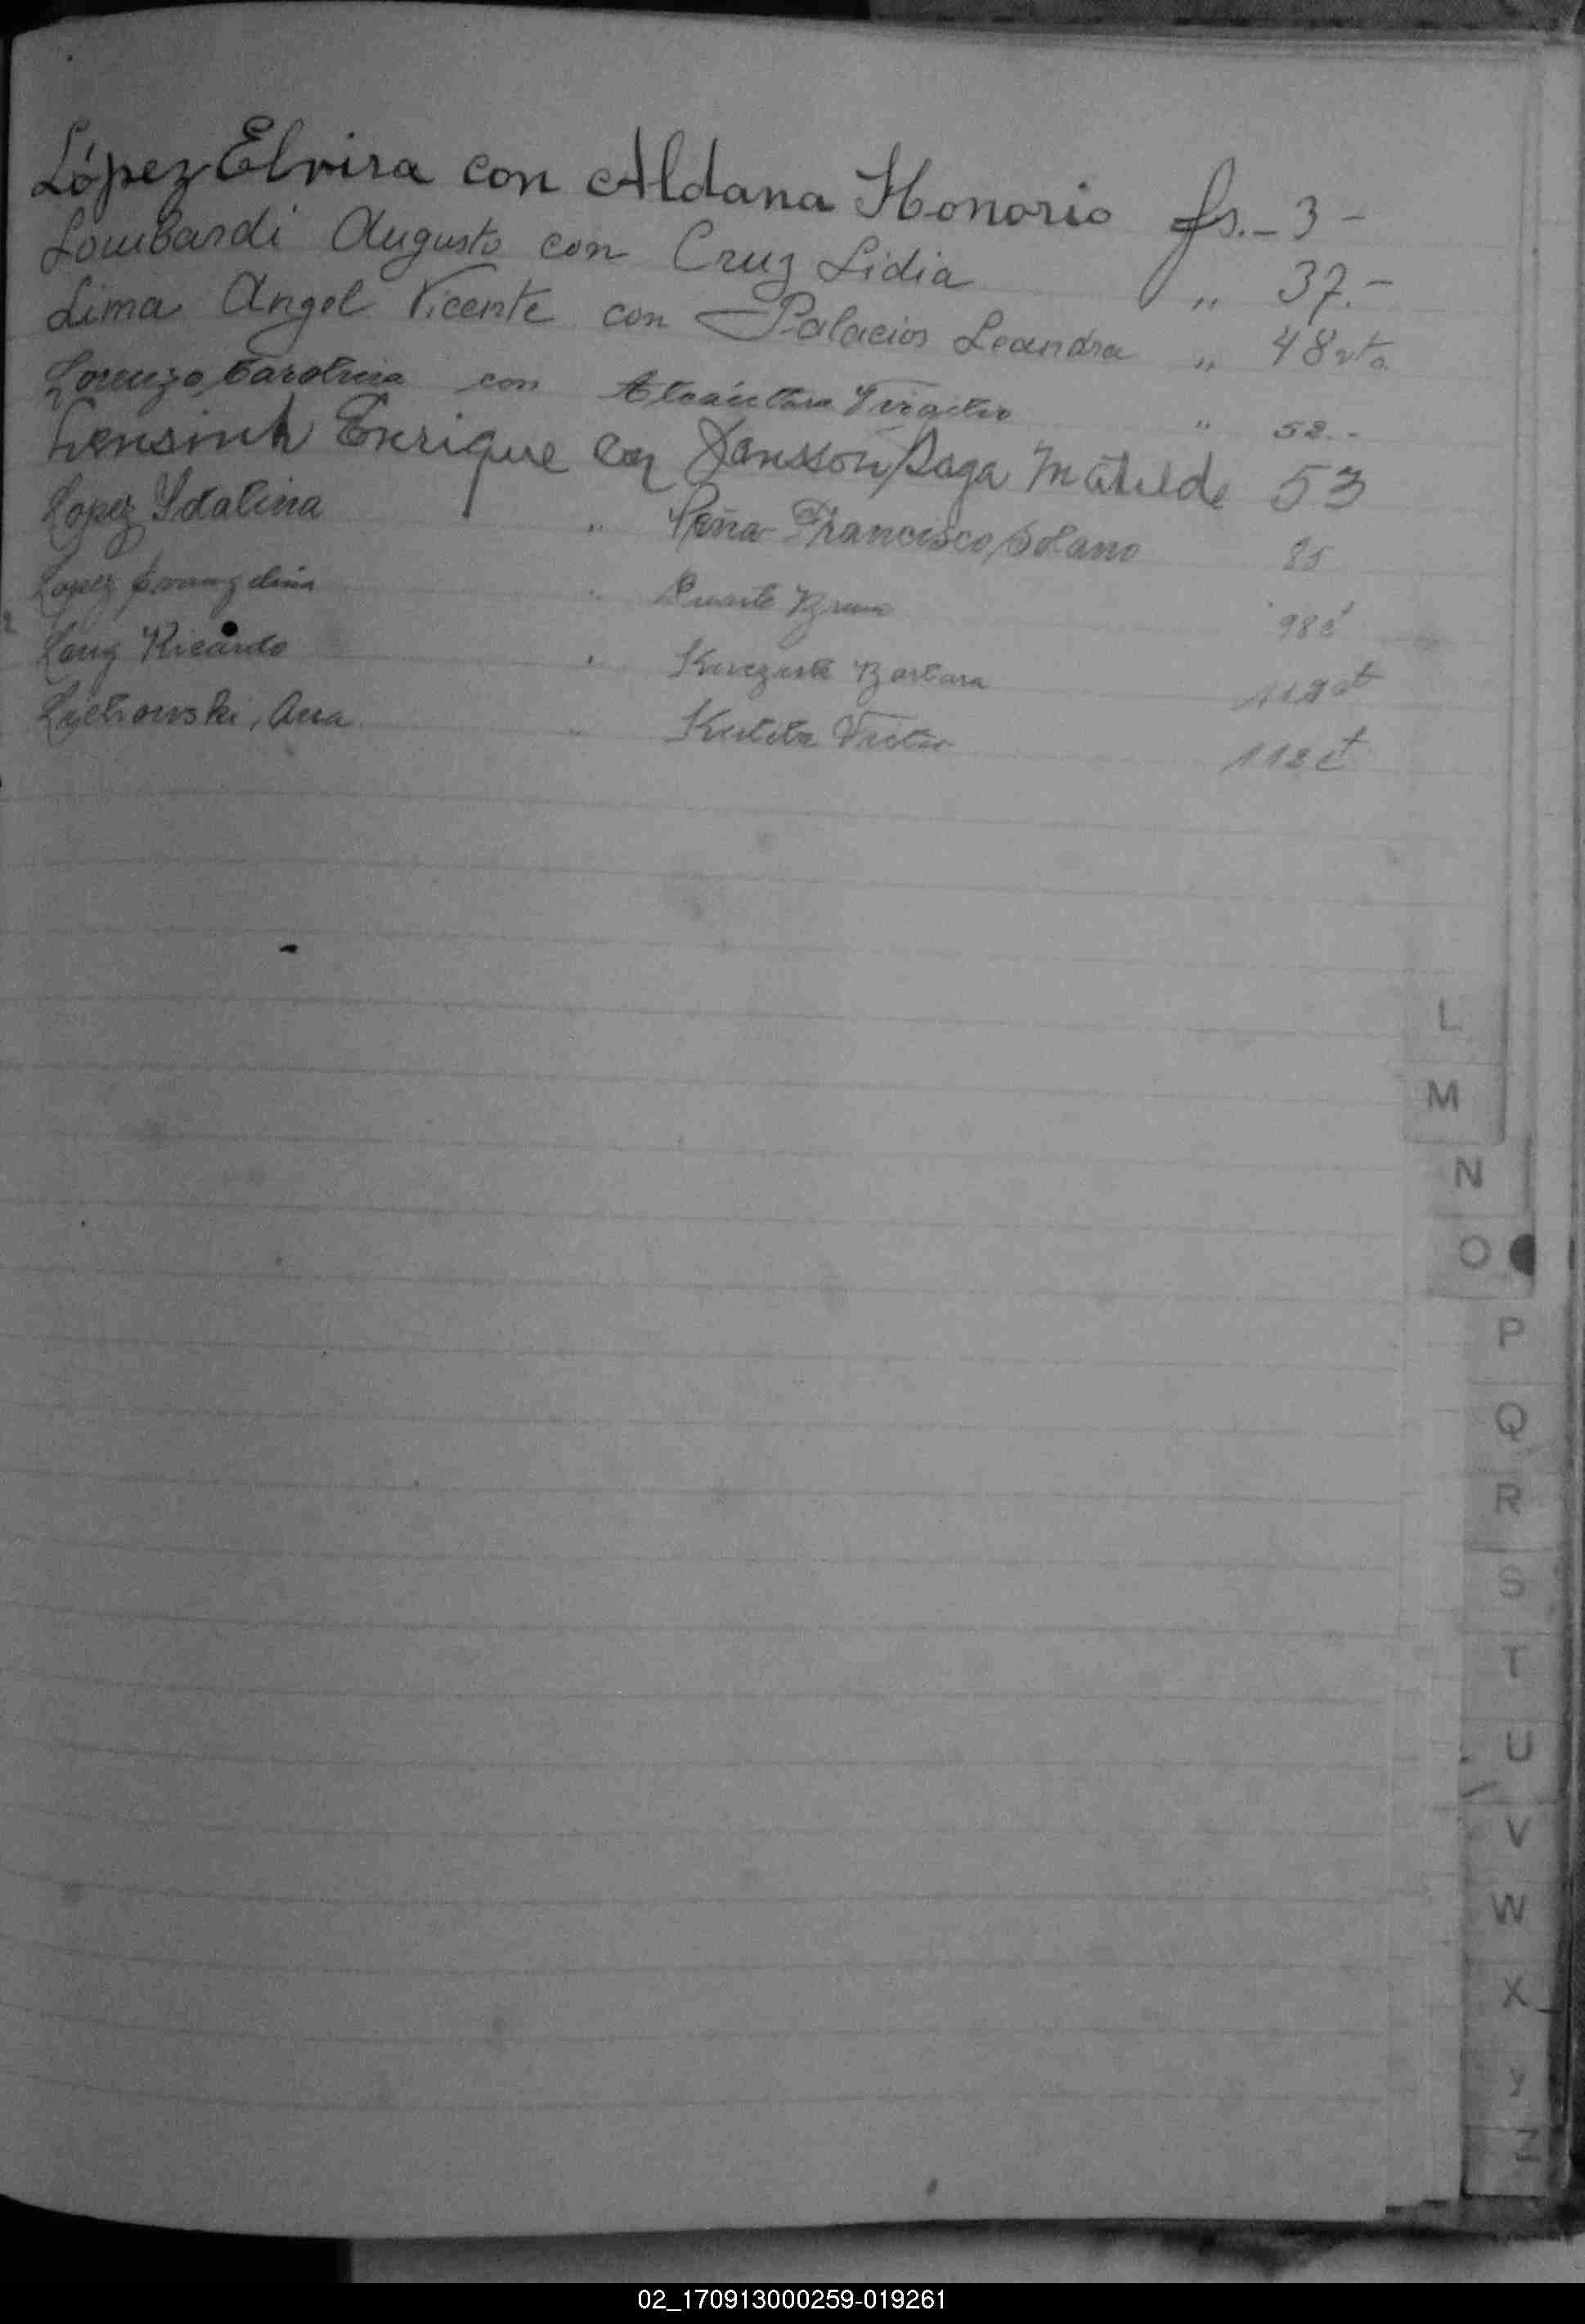 López Elvira con Aldana Honorio fs.- 3 -
Lombardi Augusto con Cruz Lidia " 37.-
Lima Angel Vicente con Palacios Leandra " 48 vta.
Lorenzo, Carolina con Alcántara Virgilio " 52.-
Lensink Enrique con Jansson Saga Matilde 53
Lopez Idalina " Peña Francisco Solano 85
Lopez Evangelina " Duarte Bruno 98
Lang Ricardo " Barbara
Ana " 112
L
M
N
O
P
Q
R
S
T
U
V
W
X
Y
Z
02_170913000259-019261